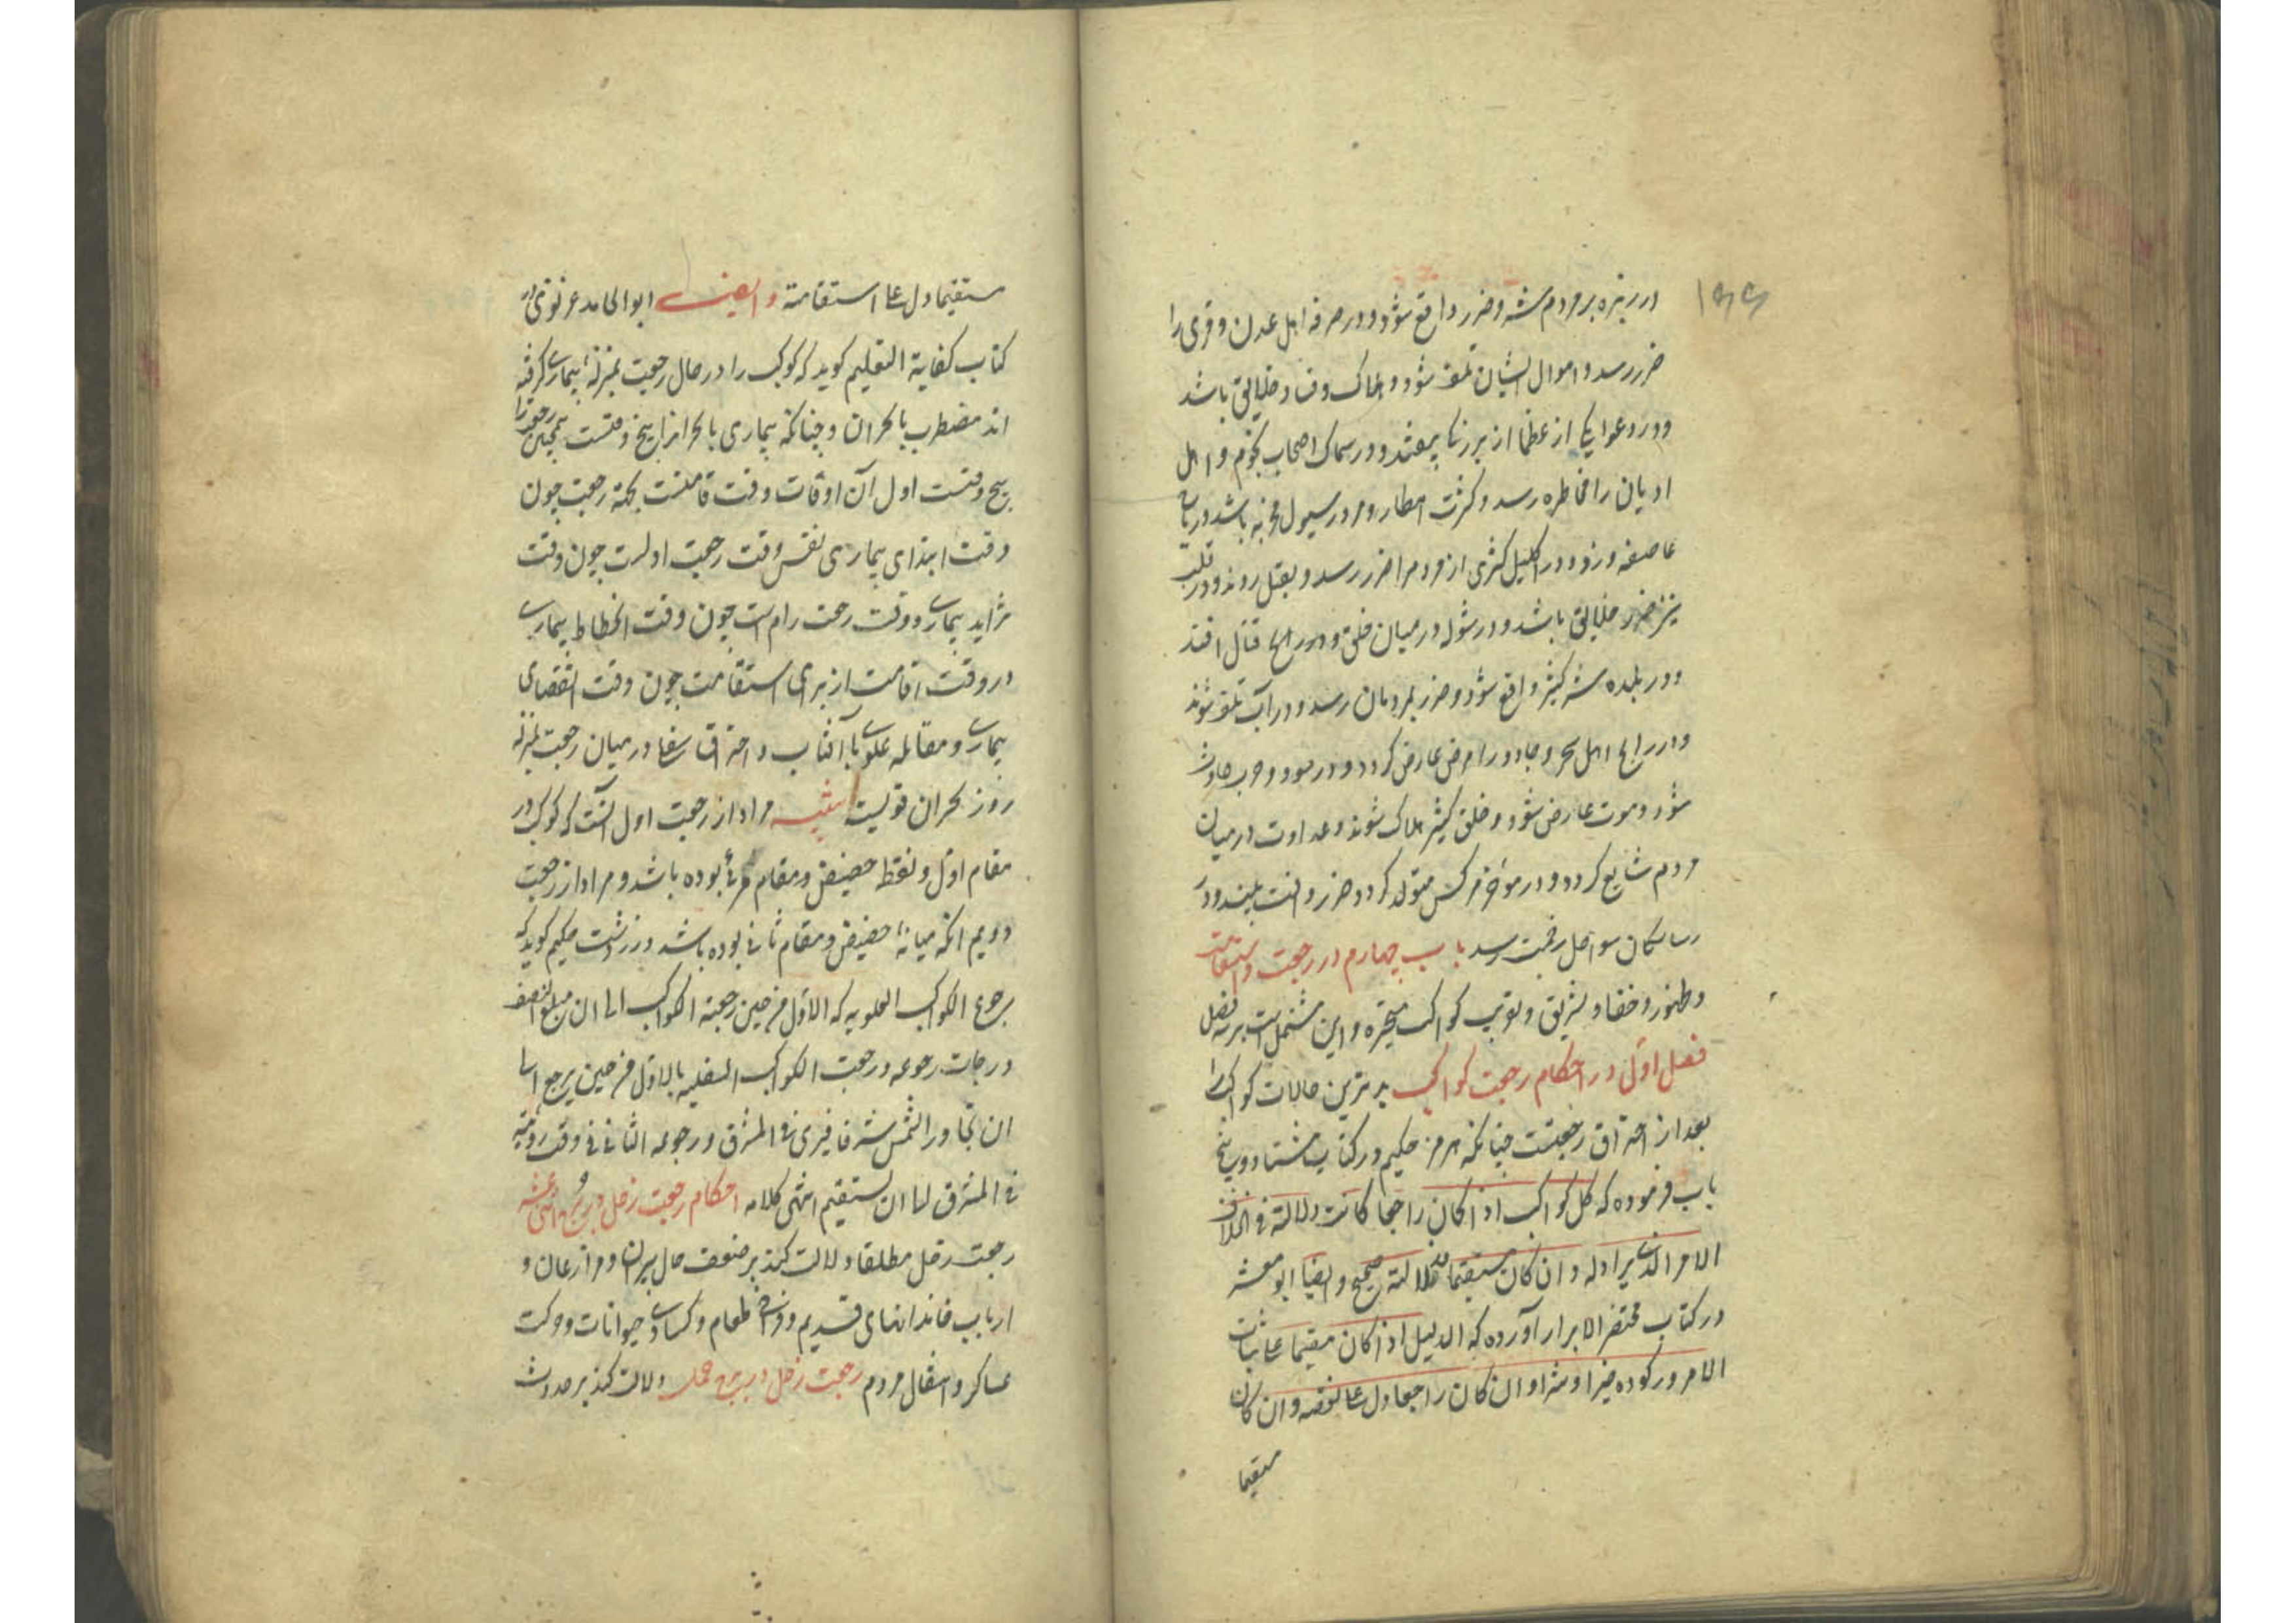 در زبره بر مردم شر و ضرر واقع شود و در صرفه اهل مدن و قری را
ضرر رسد و اموال ایشان تلف شود و هلاک و فساد خلایق باشد
و در عوا یکی از عظما از بزرگی بیفتد و در سماک اصحاب نجوم و اهل
ادیان را مخاطره رسد و کثرت امطار و مرور سیول مخربه باشد و ریاح
عاصفه وزد و در اکلیل کثری از مردم را ضرر رسد و بقتل روند و در قلب
نیز ضرر خلایق باشد و در شوله در میان خلق قتال افتد
و در بلده شر کثیر واقع شود و ضرر بمردمان رسد و در آب تلف شوند
اهل سحر و جادو را مرض عارض گردد و در سعود و حرب حادث
شود و موت عارض شود و خلق کثیر هلاک شوند و عداوت در میان
مردم شایع گردد و در مؤخر هر کس متولد گردد ضرر و آفت بیند و در
رشا سکان سواحل رحمت رسد باب چهارم در رجعت و استقامت
و ظهور و خفا و تشریق و تغریب کواکب متحیره و این مشتملست بر سه فصل
فصل اول در احکام رجعت کواکب بدترین حالات کواکب را
بعد از احتراق رجعتست چنانکه هرمز حکیم در کتاب هشتاد و پنج
باب فرموده که کل کواکب اذا کان راجعا کانت دلالته فی الخلاف
الامر الذی یراد له و ان کان مستقیما فدلالته صحیح و ایضا ابو معشر
در کتاب مختصر الابرار آورده که الدلیل اذا کان مقیما علی ثبات
الامر و رکوده خیرا و شرا و ان کان راجعا دل علی نقضه و ان کان
مستقیما
مستقیما دل علی استقامته و ایضا ابو المحامد غزنوی در
کتاب کفایة التعلیم گوید که کوکب را در حال رجعت بمنزلهٔ بیماری گرفته
اند مضطرب با بحران و چنانکه بیماری با بحران را پنج وقتست همچنین رجعت را
پنج وقتست اول آن اوقات وقت اقامتست بجهة رجعت چون
وقت ابتدای بیماری نفس وقت رجعت اولست چون وقت
تزاید بیماری و وقت رجعت دوم است چون وقت انحطاط بیماری
در وقت اقامت از برای استقامت چون وقت انقضای
بیماری و مقابله علوی با آفتاب و احتراق سفلی در میان رجعت بمنزله
روز بحران قویست تنبیه مراد از رجعت اول آنست که کوکب در
مقام اول و نقطه حضیض و مقام مرئی بوده باشد و مراد از رجعت
دویم آنکه میانهٔ حضیض و مقام ثانی بوده باشد و زردشت حکیم گوید که
رجوع الکواکب العلویه که الاول من حین رجعة الکواکب الی ان یبلغ النصف
درجات رجوعه و رجعت الکواکب السفلیه بالاول من حین یرجع الی
ان تجاور الشمس شرقا فیری فی المشرق و رجوعه الثانی فی وقت رؤیته
فی المشرق الی ان یستقیم انتهی کلامه احکام رجعت زحل در بروج اثنی عشر
رجعت زحل مطلقا دلالت کند بر ضعف حال پیران و مزارعان و
ارباب خاندانهای قدیم و نرخ طعام و کسادی حیوانات و حرکت
عساکر و انتقال مردم رجعت زحل در برج حمل دلالت کند بر حدوث